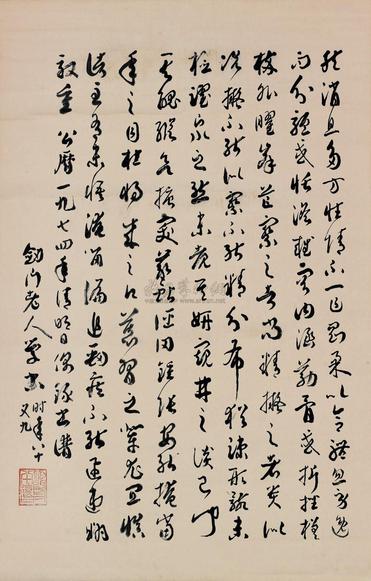 然消息多方性情不一乍剛柔以合體忽勞逸
而分驅或恬澹雍容內涵筋骨或折挫槎
枿外曜鋒芒察之者尚精擬之者貴似
況擬不能似察不能精分布猶疏形骸未
檢躍泉之態未覩其妍窺井之談已聞
其醜縱欲搪突羲獻誣罔鍾張安能掩當
年之目杜將來之口慕習之輩尤宜慎
諸至有未悟淹留偏追勁疾不能迅速翻
效遲重 公曆一九七四年清明日偶錄書譜
劍門老人學書時年八十
又九